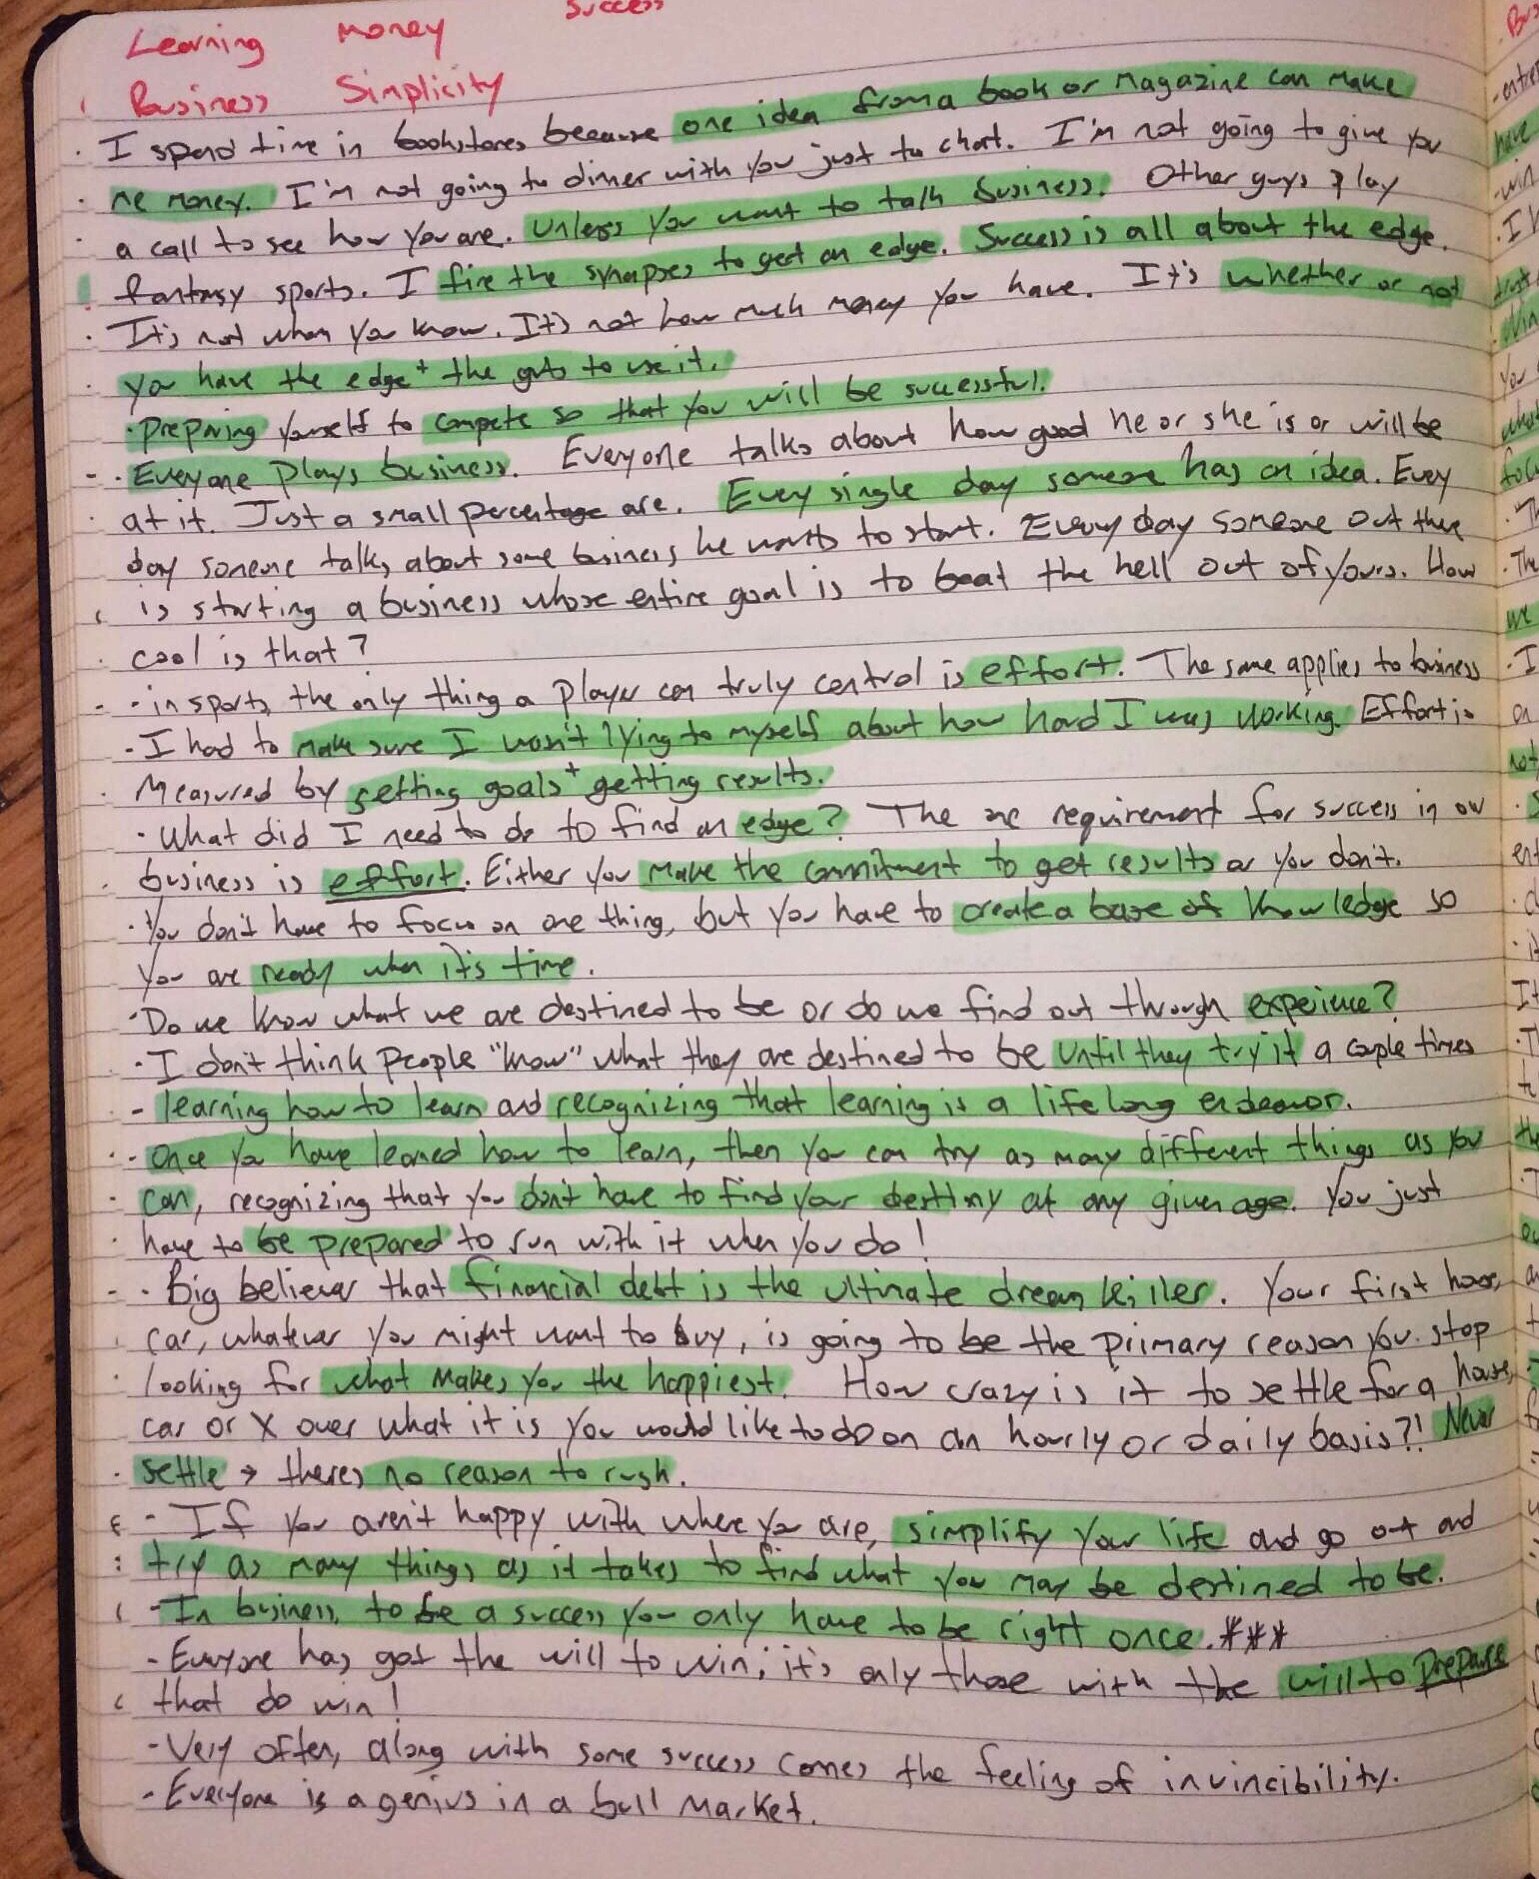 Success
Learning Money
Business Simplicity
I spend time in bookstores because one idea from a book or magazine can make
me money. I'm not going to dinner with you just to chat. I'm not going to give you
a call to see how you are. Unless you want to talk business. Other guys play
fantasy sports. I fire the synapses to get an edge. Success is all about the edge.
It's not when you know. It's not how much money you have. It's whether or not
you have the edge + the guts to use it.
· Preparing yourself to compete so that you will be successful.
· Everyone plays business. Everyone talks about how good he or she is or will be
at it. Just a small percentage are. Every single day someone has an idea. Every
day someone talks about some business he wants to start. Every day someone out there
is starting a business whose entire goal is to beat the hell out of yours. How
cool is that?
- in sports, the only thing a player can truly control is effort. The same applies to business
- I had to make sure I wasn't lying to myself about how hard I was working. Effort is
measured by setting goals + getting results.
· What did I need to do to find an edge? The one requirement for success in our
business is effort. Either you make the commitment to get results or you don't.
· You don't have to focus on one thing, but you have to create a base of knowledge so
you are ready when it's time.
· Do we know what we are destined to be or do we find out through experience?
· I don't think people "know" what they are destined to be until they try it a couple times
- learning how to learn and recognizing that learning is a lifelong endeavor.
- Once you have learned how to learn, then you can try as many different things as you
can, recognizing that you don't have to find your destiny at any given age. You just
have to be prepared to run with it when you do!
· Big believer that financial debt is the ultimate dream killer. Your first house,
car, whatever you might want to buy, is going to be the primary reason you stop
looking for what makes you the happiest. How crazy is it to settle for a house,
car or X over what it is you would like to do on an hourly or daily basis?! Never
settle → theres no reason to rush.
- If you aren't happy with where you are, simplify your life and go out and
try as many things as it takes to find what you may be destined to be.
- In business, to be a success you only have to be right once. ***
- Everyone has got the will to win; it's only those with the will to prepare
that do win!
- Very often, along with some success comes the feeling of invincibility.
- Everyone is a genius in a bull market.